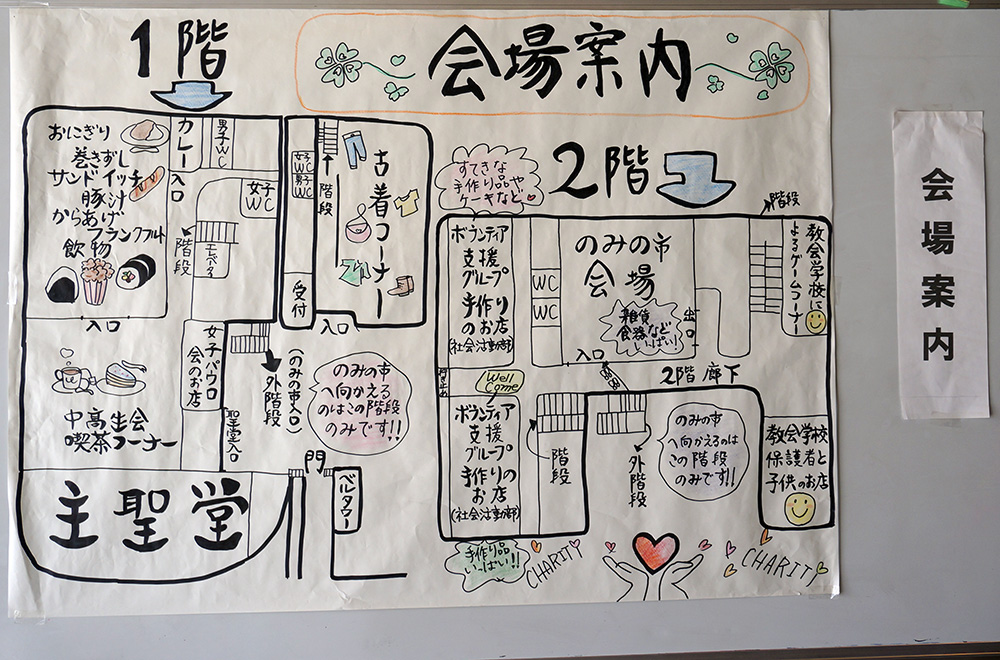 会場案内
1階
おにぎり
巻きずし
サンドイッチ
豚汁
からあげ
フランクフルト
飲物
カレー
入口
男子WC
女子WC
階段
モニタ
入口
中高生会
喫茶コーナー
女子パウロ
会のお店
聖堂入口
主聖堂
女子WC
男子WC
階段
受付
古着コーナー
入口
外階段
(のみの市入口)
のみの市
へ向かえる
のはこの階段
のみです!!
門
ベルタワー
2階
すてきな
手作り品や
ケーキなど
ボランティア
支援
グループ
手作り
のお店
(社会活動部)
WC
WC
のみの市
会場
雑貨
食器など
いっぱい!
入口
出口
階段
教会学校に
よるゲームコーナー
2階廊下
行き止め
Well
Come
ボランティア
支援
グループ
手作りの
お店
(社会活動部)
階段
外階段
のみの市
へ向かえるのは
この階段
のみです!!
教会学校
保護者と
子供のお店
手作り品
いっぱい!!
CHARITY
CHARITY
会場案内